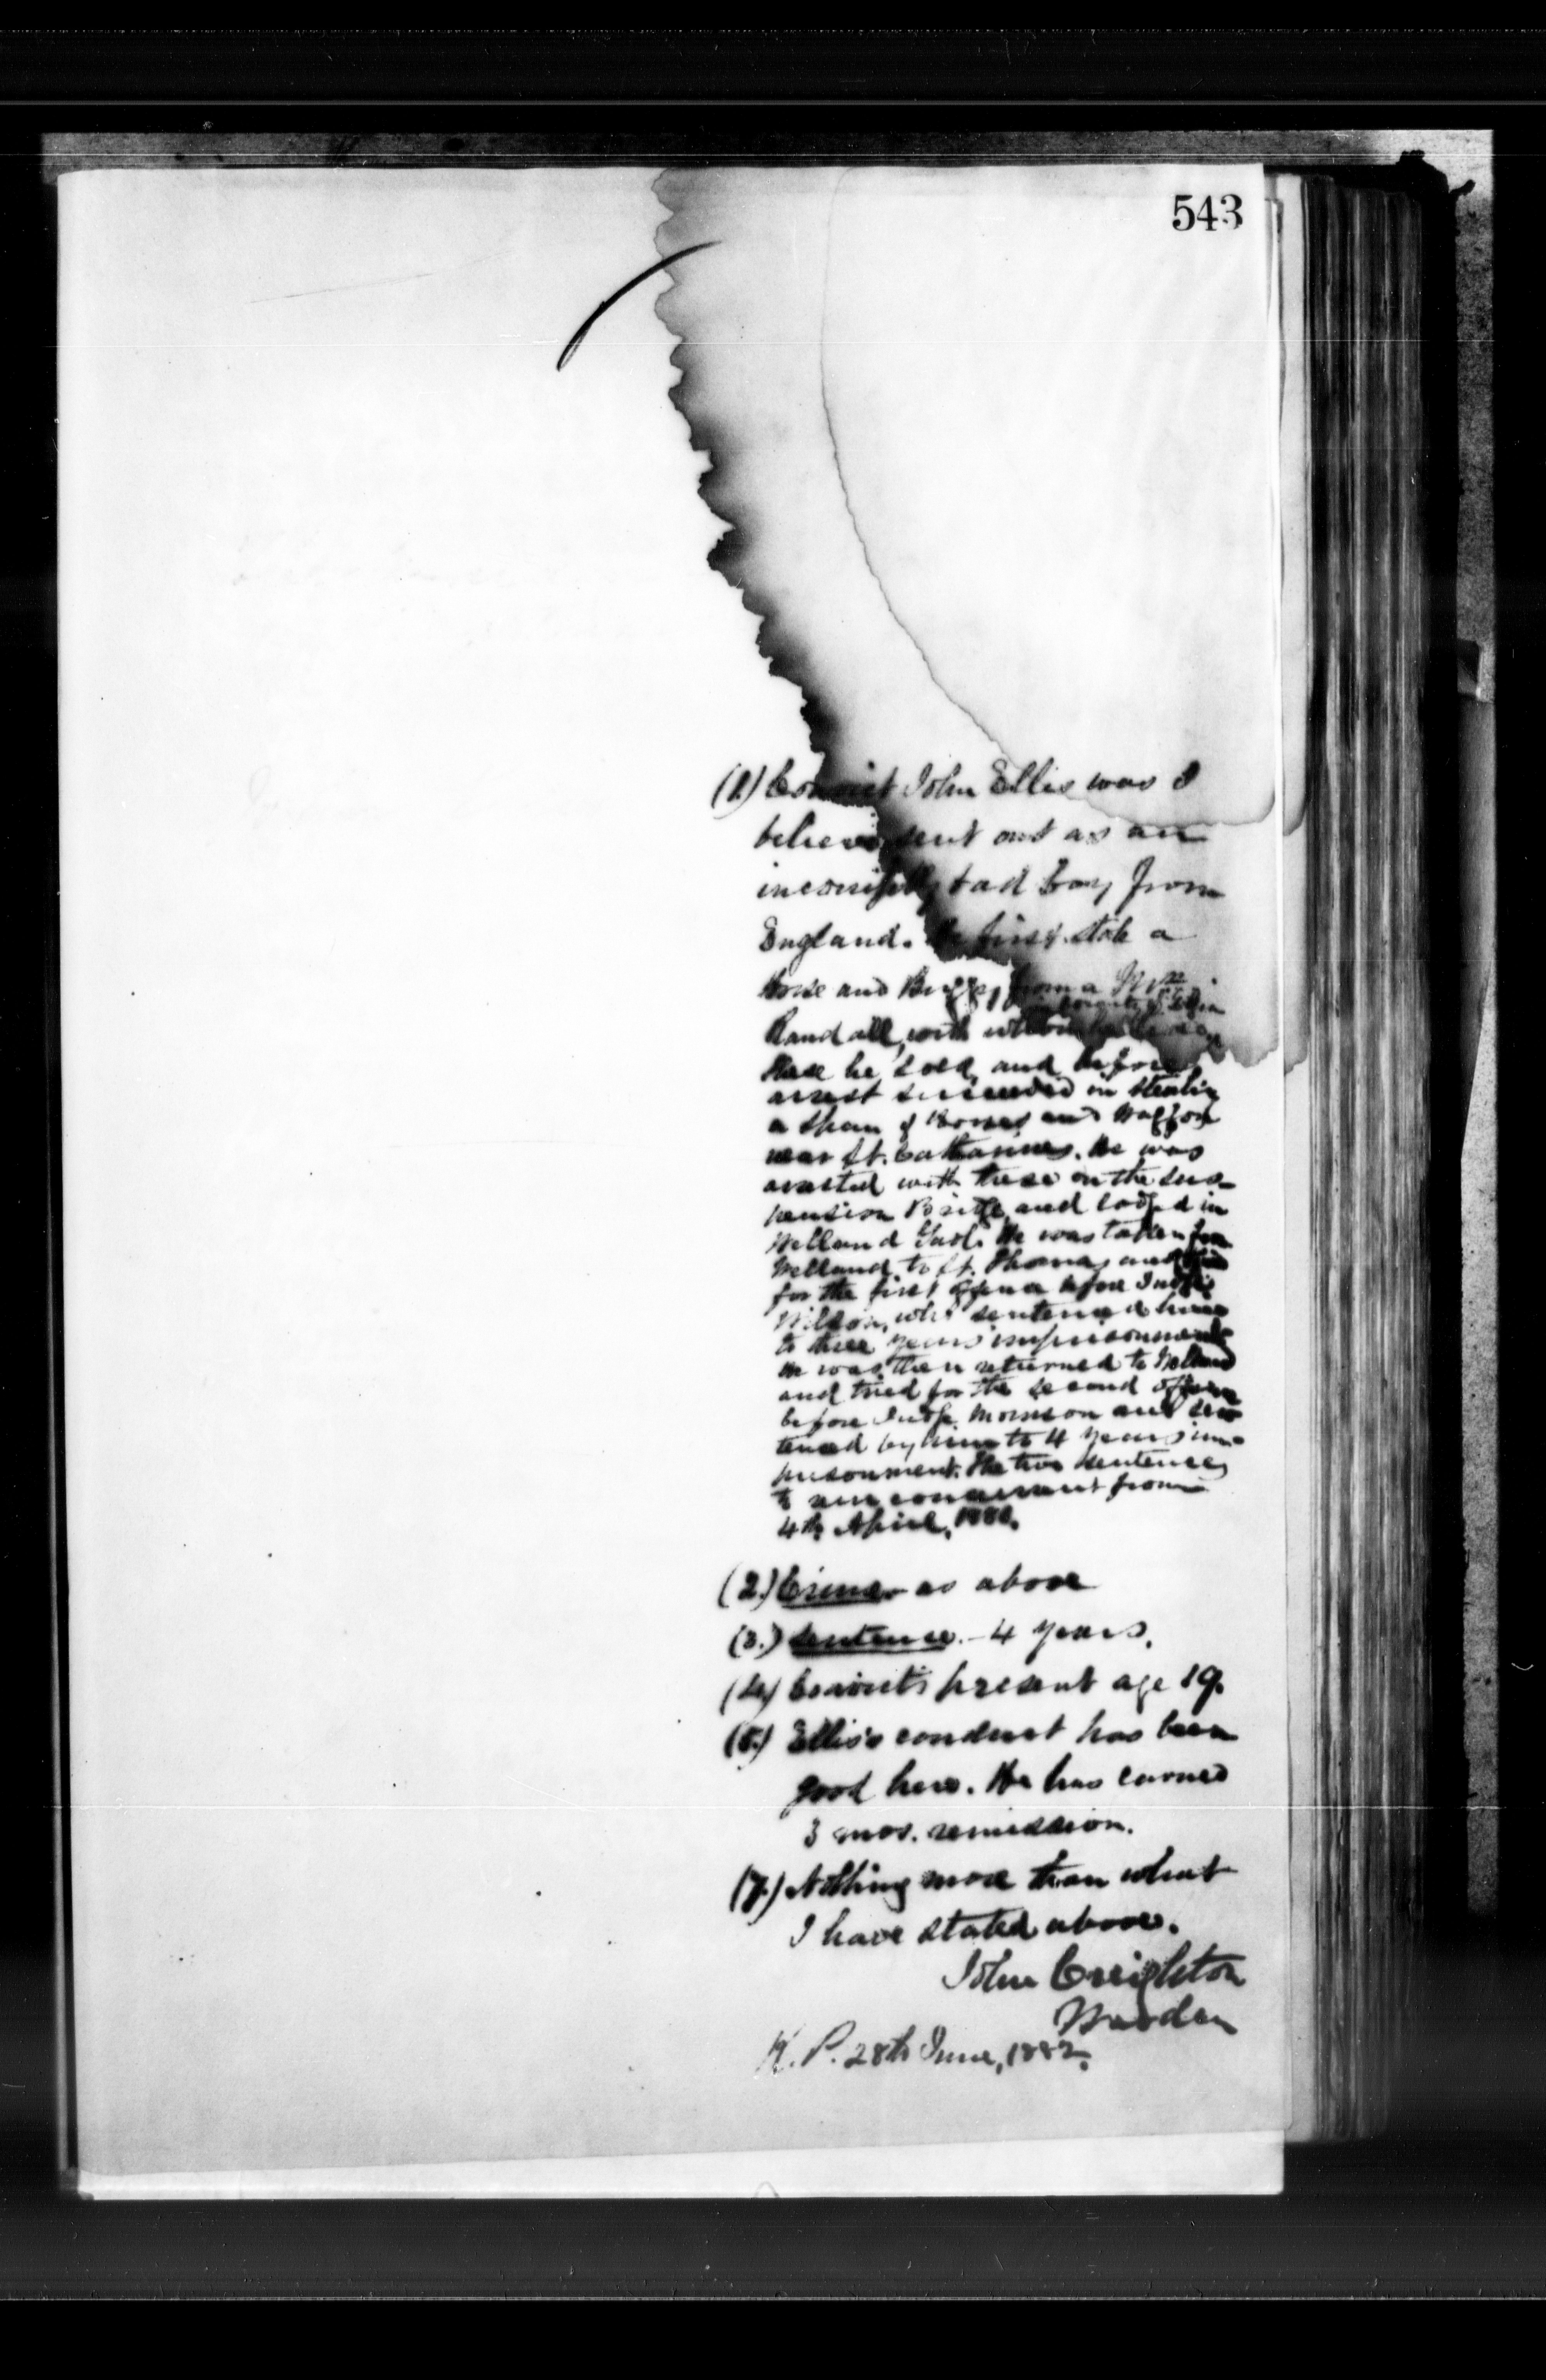 543
(1.) Convict John Ellis was I
believe sent out as an
incorrigibly bad boy from
England. He first stole a
Horse and Buggy from a Wm
in County of Elgin
Randall, with whom he
these he sold, and before
arrest succeeded in stealing
a span of Horses and Waggon
near St. Catharines. He was
arrested with these on the Sus-
pension Bridge, and lodged in
Welland Gaol. He was taken from
Welland to St. Thomas and tried
for the first offence before Judge
Wilson, who sentenced him
to three years' imprisonment.
He was then returned to Welland
and tried for the second offence
before Judge Morrison and sen-
tenced by him to 4 years' im-
prisonment. The two sentences
to run concurrent from
4th April, 1880.
(2.) Crime - as above
(3.) Sentence. - 4 years.
(4.) Convict's present age 19.
(5.) Ellis's conduct has been
good here. He has earned
3 mos. remission.
(7.) Nothing more than what
I have stated above.
John Creighton
Warden
K. P. 28th June, 1882.